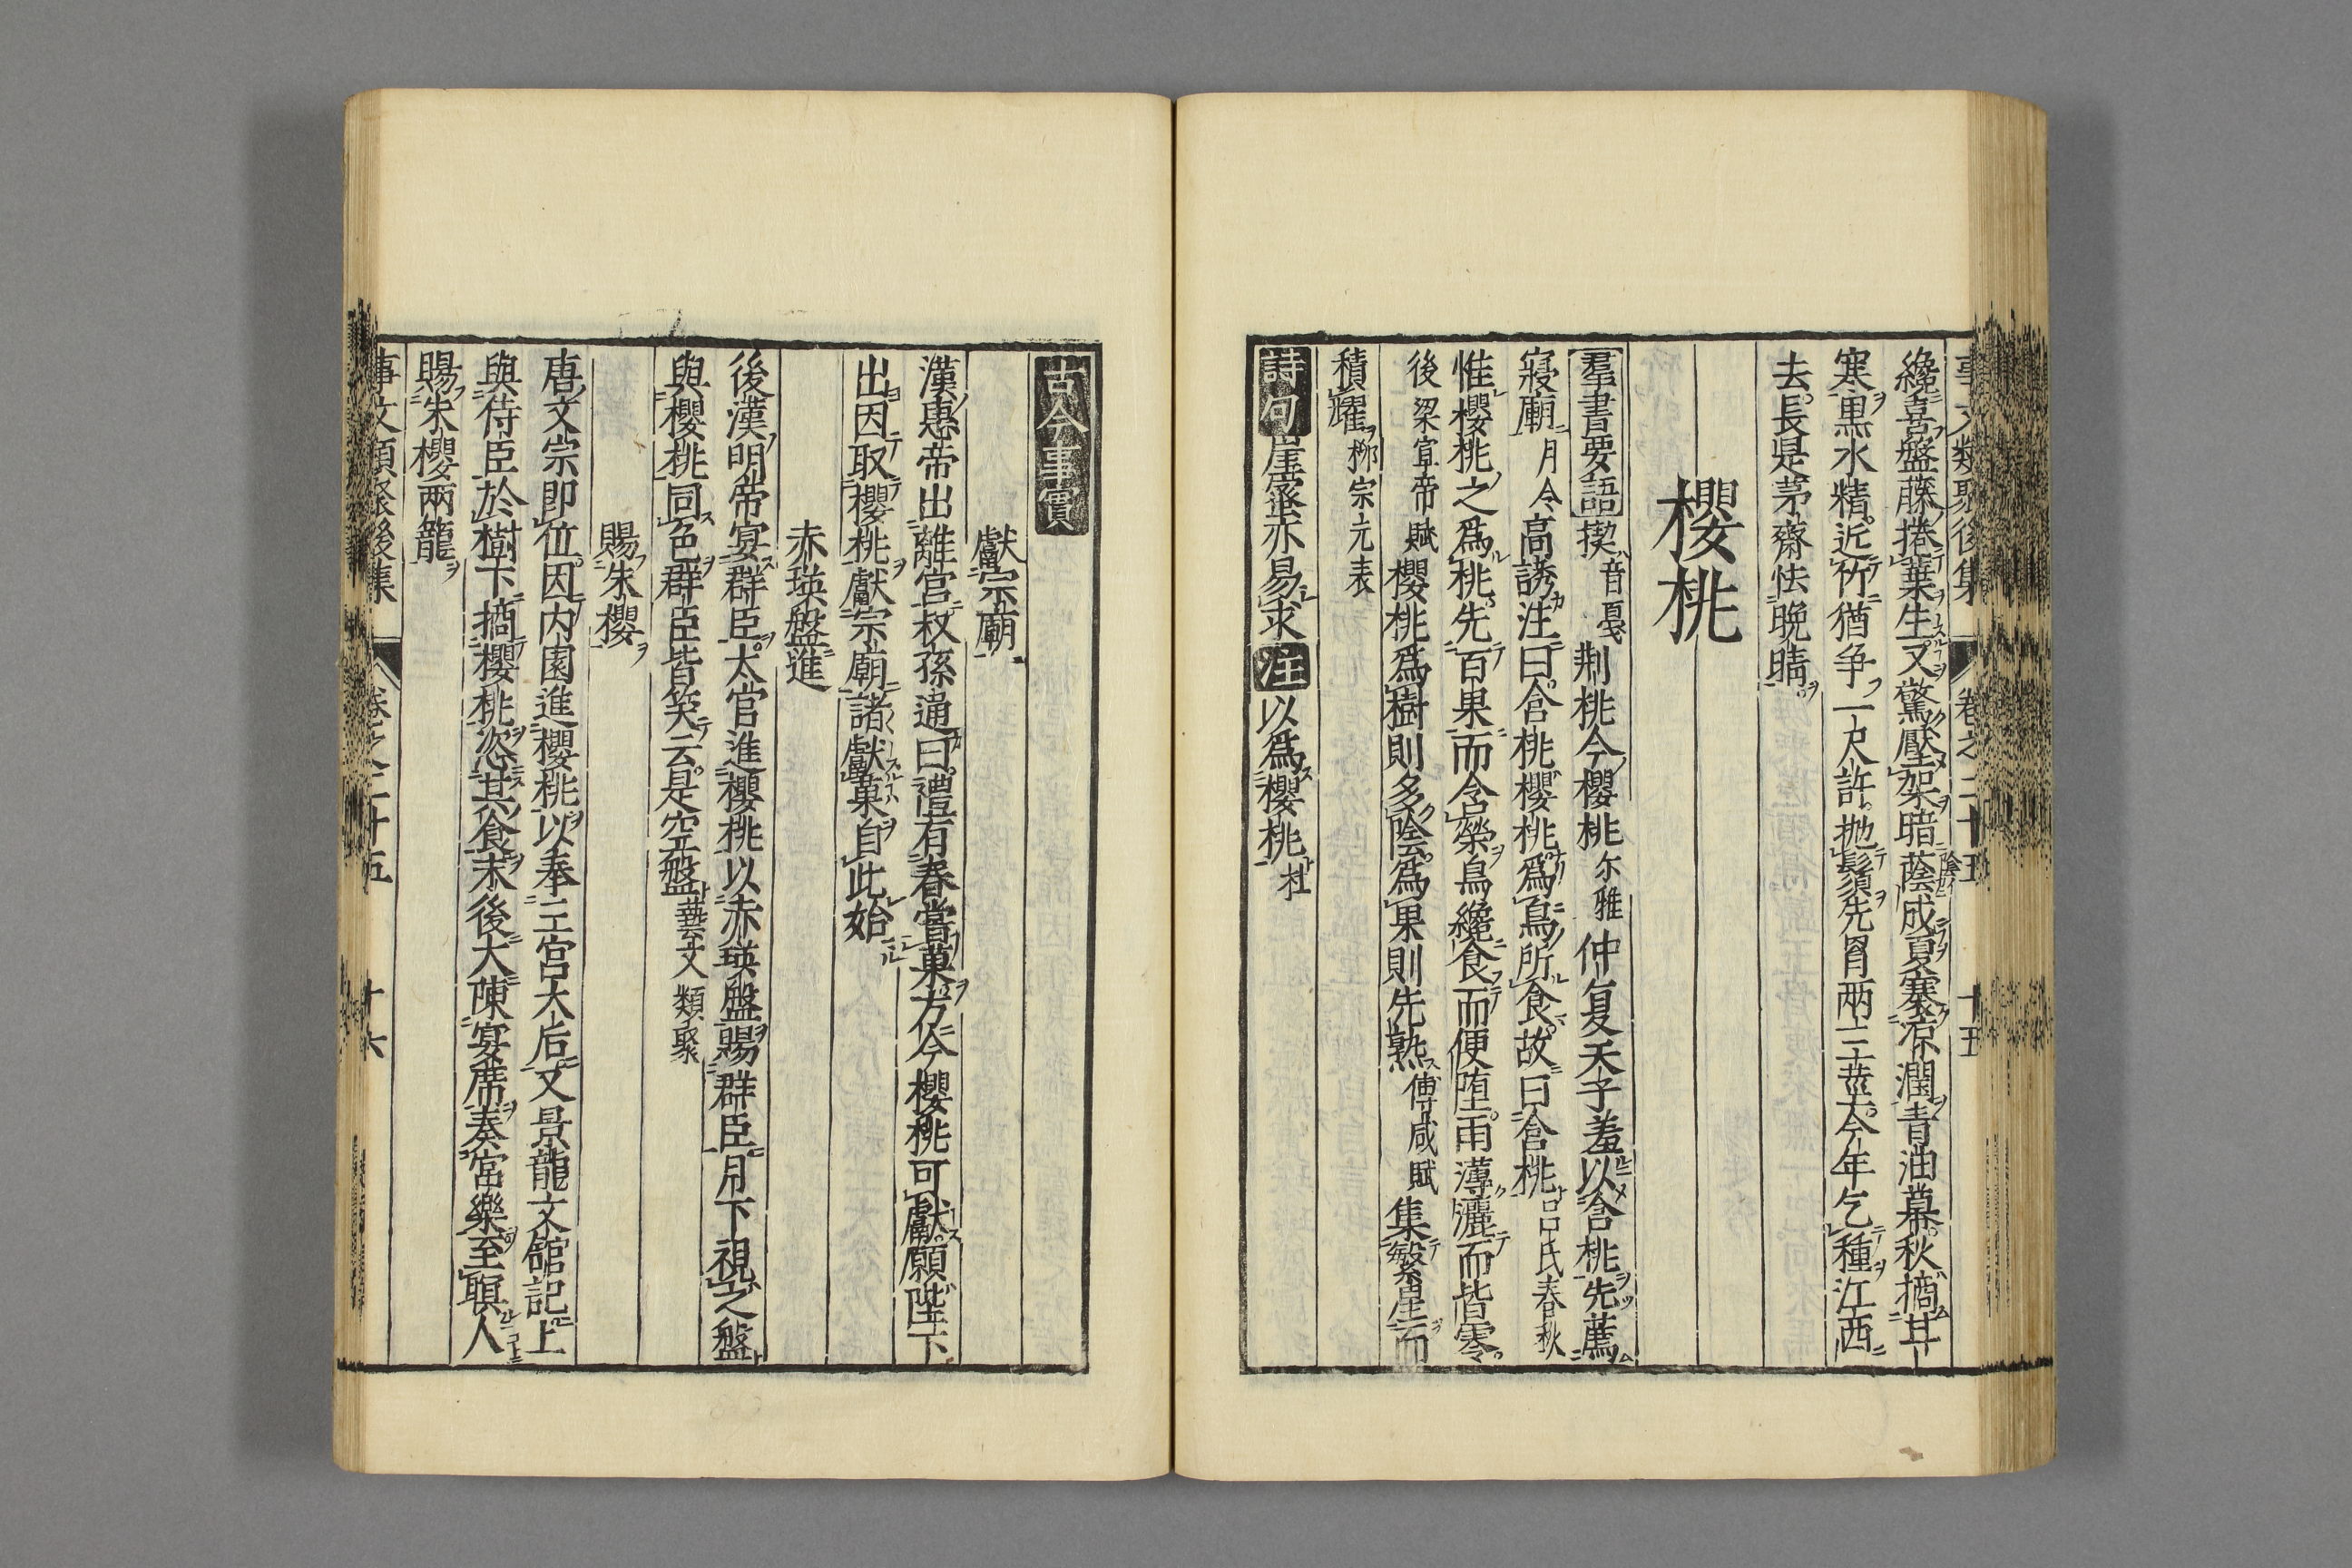 事文類聚後集 卷之二十五 十五
纔喜盤藤捲葉生又驚壓架暗蔭成夏寨凉潤青油幕秋摘甘
寒黒水精近竹猶爭一尺許抛鬚先胃兩三莖今年乞種江西
去長是茅齋怯晩晴
櫻桃
羣書要語楔音戞荆桃今櫻桃尓雅仲夏天子羞以含桃先薦
寝廟月令高誘注曰含桃櫻桃為鳥所食故曰含桃呂氏春秋
惟櫻桃之為桃先百果而含榮鳥纔食而便墮雨薄灑而皆零
後梁宣帝賦櫻桃為樹則多陰為果則先熟傅咸賦集繁星而
積耀栁宗元表
詩句崖蜜亦易求注以為櫻桃杜
古今事實
獻宗廟
漢惠帝出離宫叔孫通曰禮有春嘗菓方今櫻桃可獻願陛下
出因取櫻桃獻宗廟諸獻菓自此始
赤瑛盤進
後漢明帝宴群臣太官進櫻桃以赤瑛盤賜群臣月下視之盤
與櫻桃同色群臣皆笑云是空盤藝文類聚
賜朱櫻
唐文宗即位因内園進櫻桃以奉三宮太后又景龍文舘記上
與侍臣於樹下摘櫻桃恣其食末後大陳宴席奏宮樂至暝人
賜朱櫻兩籠
事文類聚後集 卷之二十五 十六